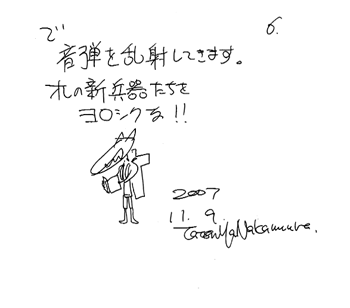 6.
で
音弾を乱射してきます。
オレの新兵器たちを
ヨロシクな!!
2007
11. 9.
Tatsuya Nakamura.